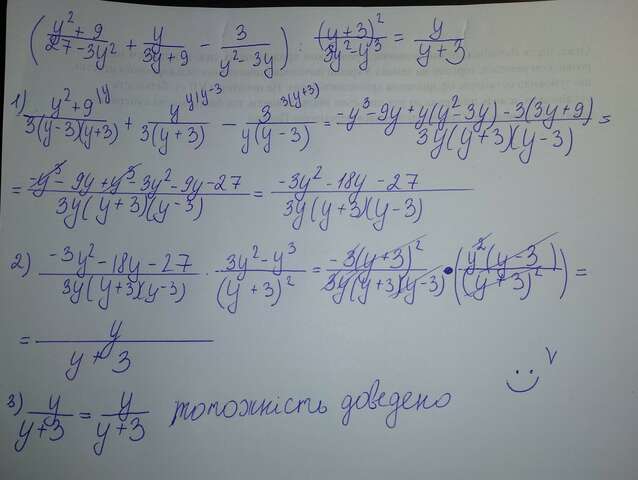 ( (y²+9)/(27-3y²) + y/(3y+9) - 3/(y²-3y) ) : (y+3)²/(3y²-y³) = y/(y+3)
1) (y²+9)/(3(y-3)(y+3)) \y + y/(3(y+3)) \y\y-3 - 3/(y(y-3)) \3(y+3) = (-y³-9y+y(y²-3y)-3(3y+9))/(3y(y+3)(y-3)) =
= (-y³-9y+y³-3y²-9y-27)/(3y(y+3)(y-3)) = (-3y²-18y-27)/(3y(y+3)(y-3))
2) (-3y²-18y-27)/(3y(y+3)(y-3)) · (3y²-y³)/(y+3)² = (-3(y+3)²)/(3y(y+3)(y-3)) • ( (y²(y-3))/((y+3)²) ) =
= y/(y+3)
3) y/(y+3) = y/(y+3) тотожність доведено